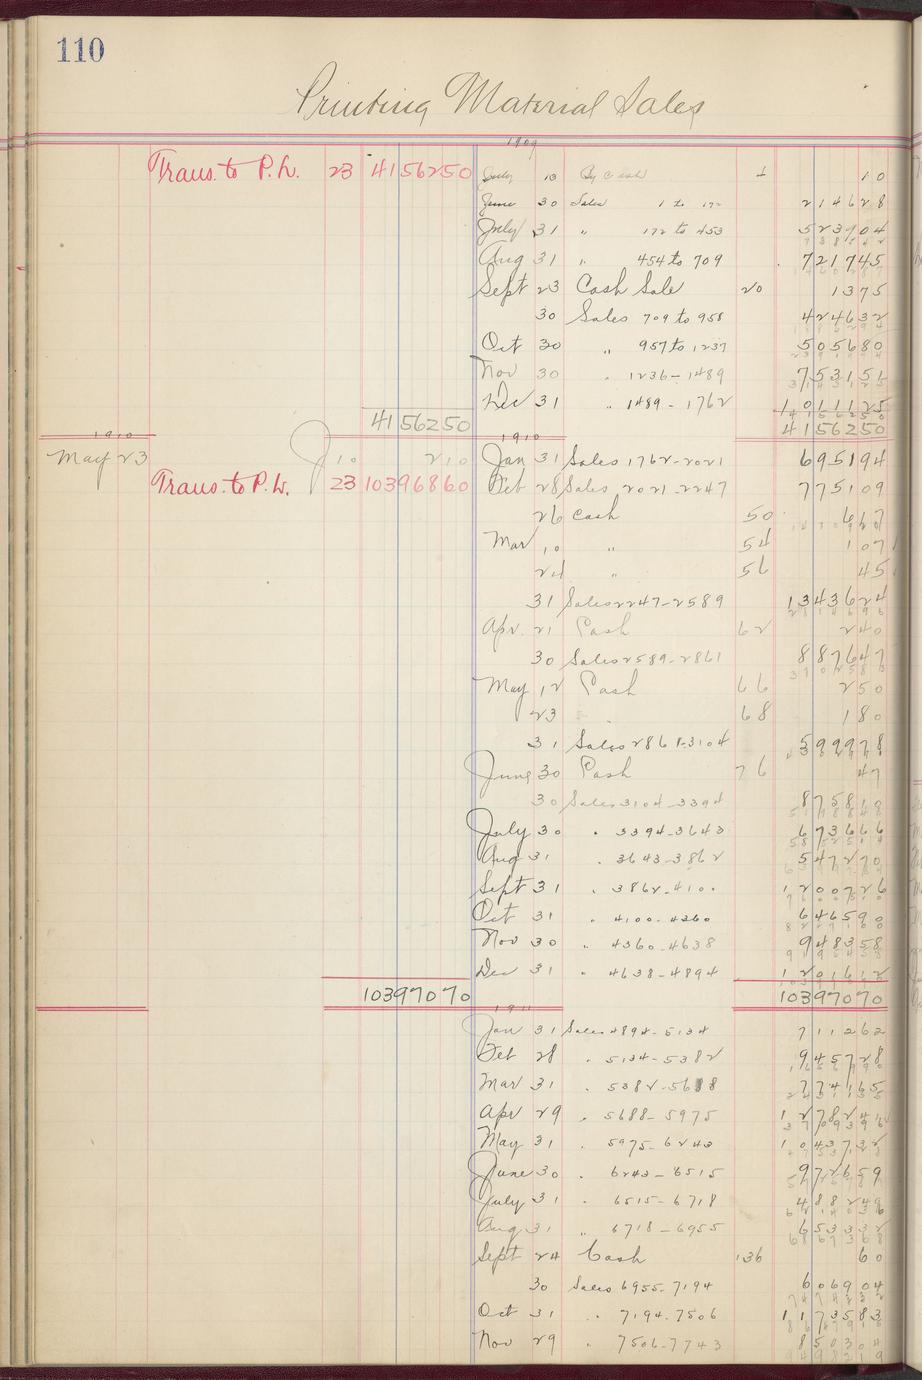 110
Printing Material Sales
1909
Trans. to P. L. 23 4156250 July 10 By Cash 1 10
June 30 Sales 1 to 172 214628
July 31 " 172 to 453 523904
Aug 31 " 454 to 709 721745
Sept 23 Cash Sale 20 1375
30 Sales 709 to 958 424632
Oct 30 " 957 to 1237 505680
Nov 30 " 1236-1489 753151
Dec 31 " 1489-1762 1011125
4156250 4156250
1910 1910
May 23 J 10 210 Jan 31 Sales 1762-2021 695194
Trans. to P. L. 23 10396860 Feb 28 Sales 2021-2247 775109
26 Cash 50 617
Mar 10 " 54 107
24 " 56 45
31 Sales 2247-2589 1343624
Apr. 21 Cash 62 240
30 Sales 2589-2861 887647
May 12 Cash 66 250
23 " 68 180
31 Sales 2861-3104 599978
June 30 Cash 76 47
30 Sales 3104-3394 875810
July 30 " 3394-3643 673666
Aug 31 " 3643-3862 547270
Sept 31 " 3862-4100 1200726
Oct 31 " 4100-4360 646590
Nov 30 " 4360-4638 948358
Dec 31 " 4638-4894 1201612
10397070 10397070
1911
Jan 31 Sales 4894-5134 711262
Feb 28 " 5134-5382 945728
Mar 31 " 5382-5688 774165
Apr 29 " 5688-5975 1278241
May 31 " 5975-6243 1043732
June 30 " 6243-6515 972659
July 31 " 6515-6718 488249
Aug 31 " 6718-6955 653332
Sept 24 Cash 136 60
30 Sales 6955-7194 606904
Oct 31 " 7194-7506 1173583
Nov 29 " 7506-7743 850304